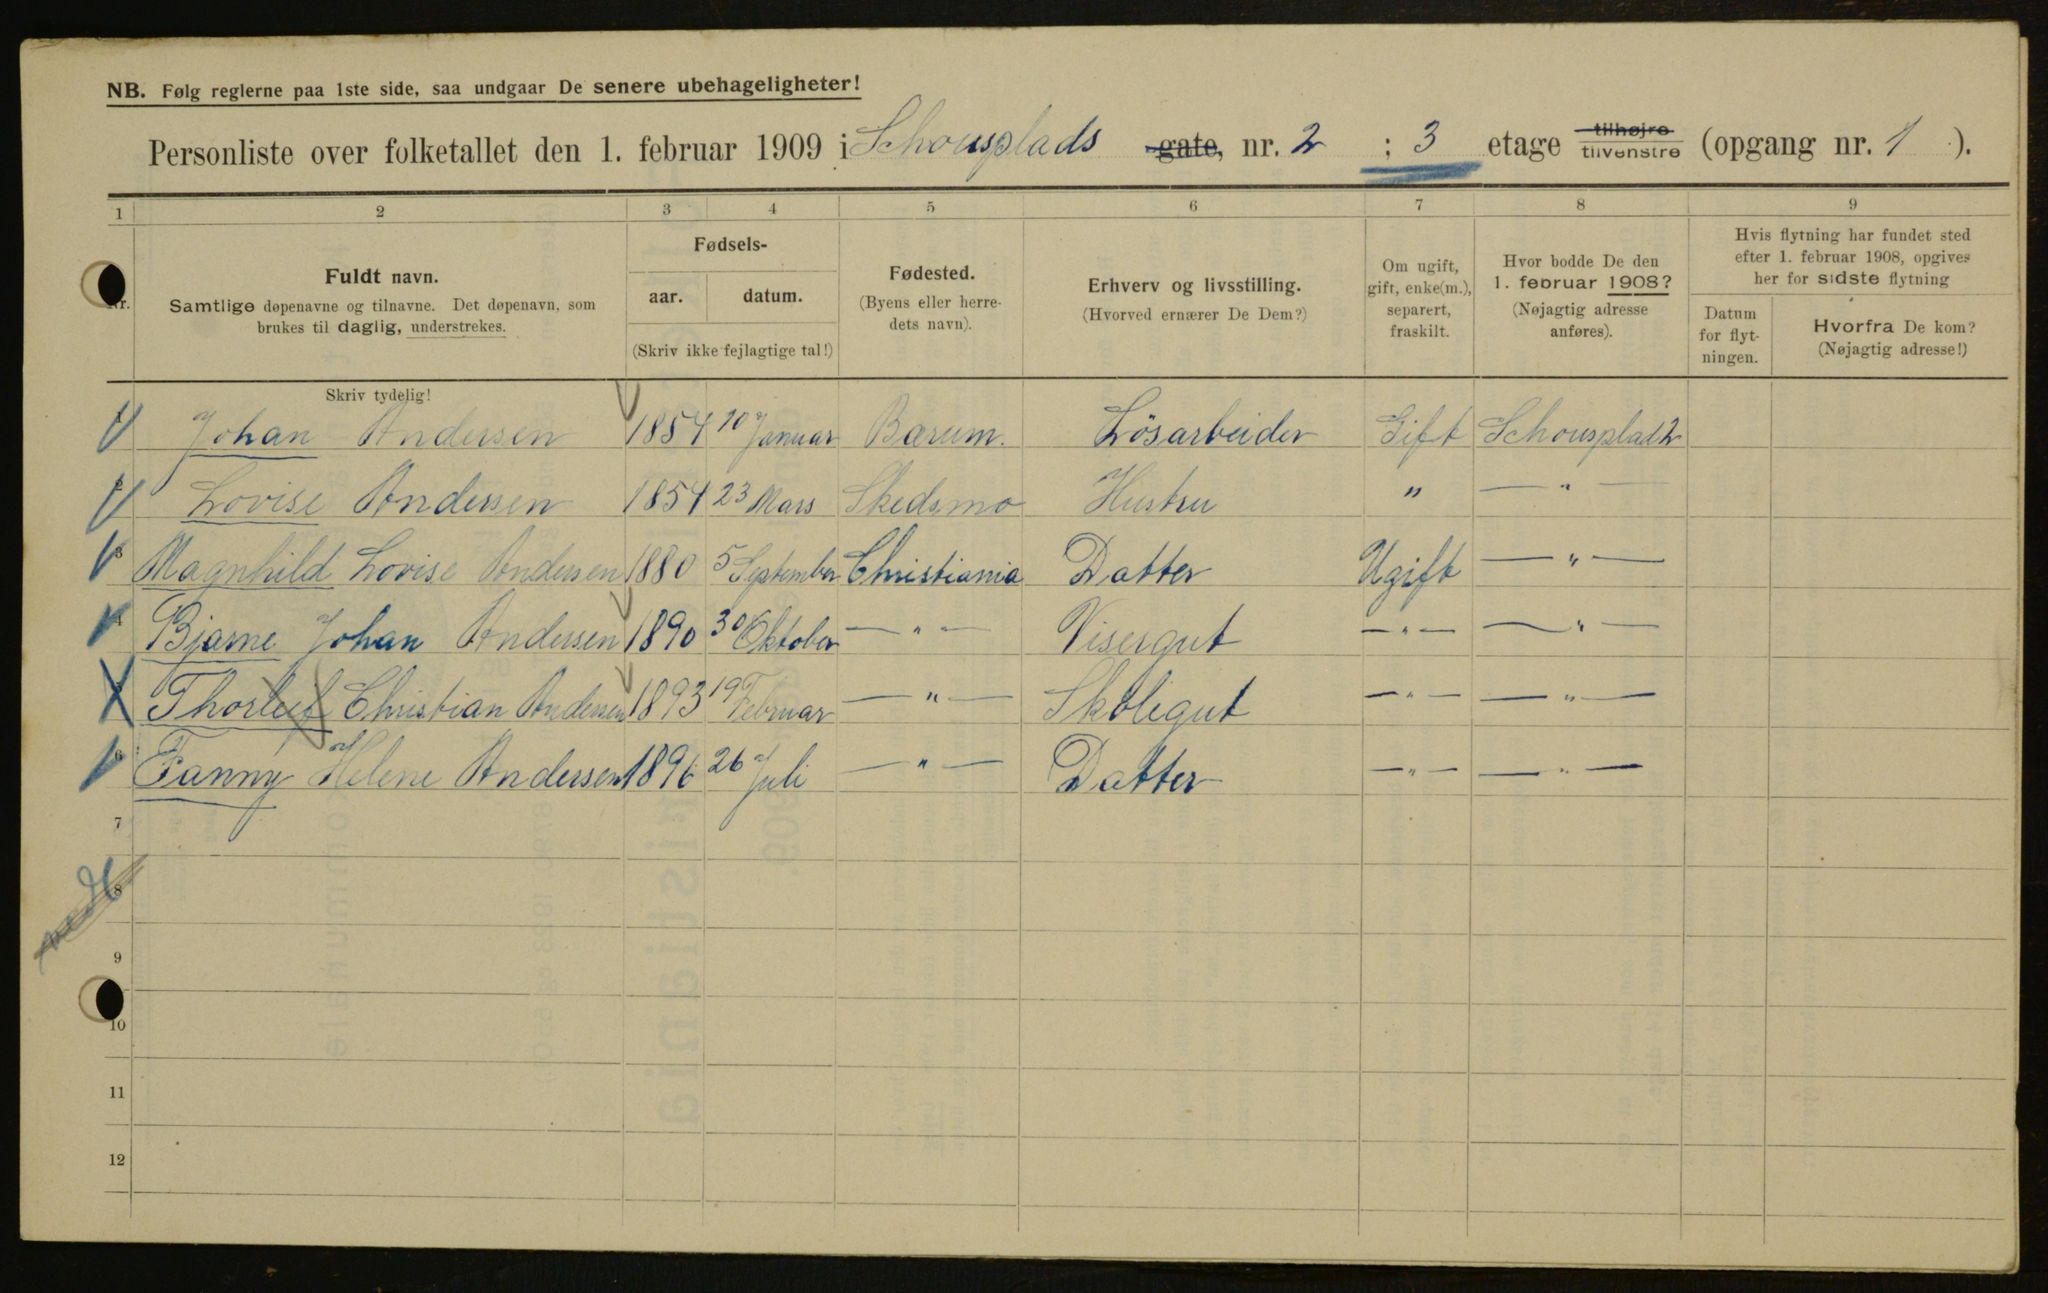 NB. Følg reglerne paa 1ste side, saa undgaar De senere ubehageligheter!
Personliste over folketallet den 1. februar 1909 i Schousplads gate, nr. 2 ; 3 etage tilhøjre tilvenstre (opgang nr. 1 ).
1 2 3 4 5 6 7 8 9
Nr.
Fuldt navn.
Samtlige døpenavne og tilnavne. Det døpenavn, som
brukes til daglig, understrekes.
Skriv tydelig!
Fødsels-
aar. datum.
(Skriv ikke fejlagtige tal!)
Fødested.
(Byens eller herre-
dets navn).
Erhverv og livsstilling.
(Hvorved ernærer De Dem?)
Om ugift,
gift, enke(m.),
separert,
fraskilt.
Hvor bodde De den
1. februar 1908?
(Nøjagtig adresse
anføres).
Hvis flytning har fundet sted
efter 1. februar 1908, opgives
her for sidste flytning
Datum
for flyt-
ningen.
Hvorfra De kom?
(Nøjagtig adresse!)
Johan Andersen 1854 10 Januar Bærum. Lösarbeider Gift Schousplad 2
Lovise Andersen 1854 23 Mars Skedsmo Hustru " — " —
3 Magnhild Lovise Andersen 1880 5 September Christiania Datter Ugift — " —
4 Bjarne Johan Andersen 1890 30 Oktober — " — Visergut — " — — " —
Thorleif Christian Andersen 1893 19 Februar — " — Skolegut — " — — " —
6 Fanny Helene Andersen 1896 26 Juli — " — Datter — " — — " —
7
8
9
10
11
12